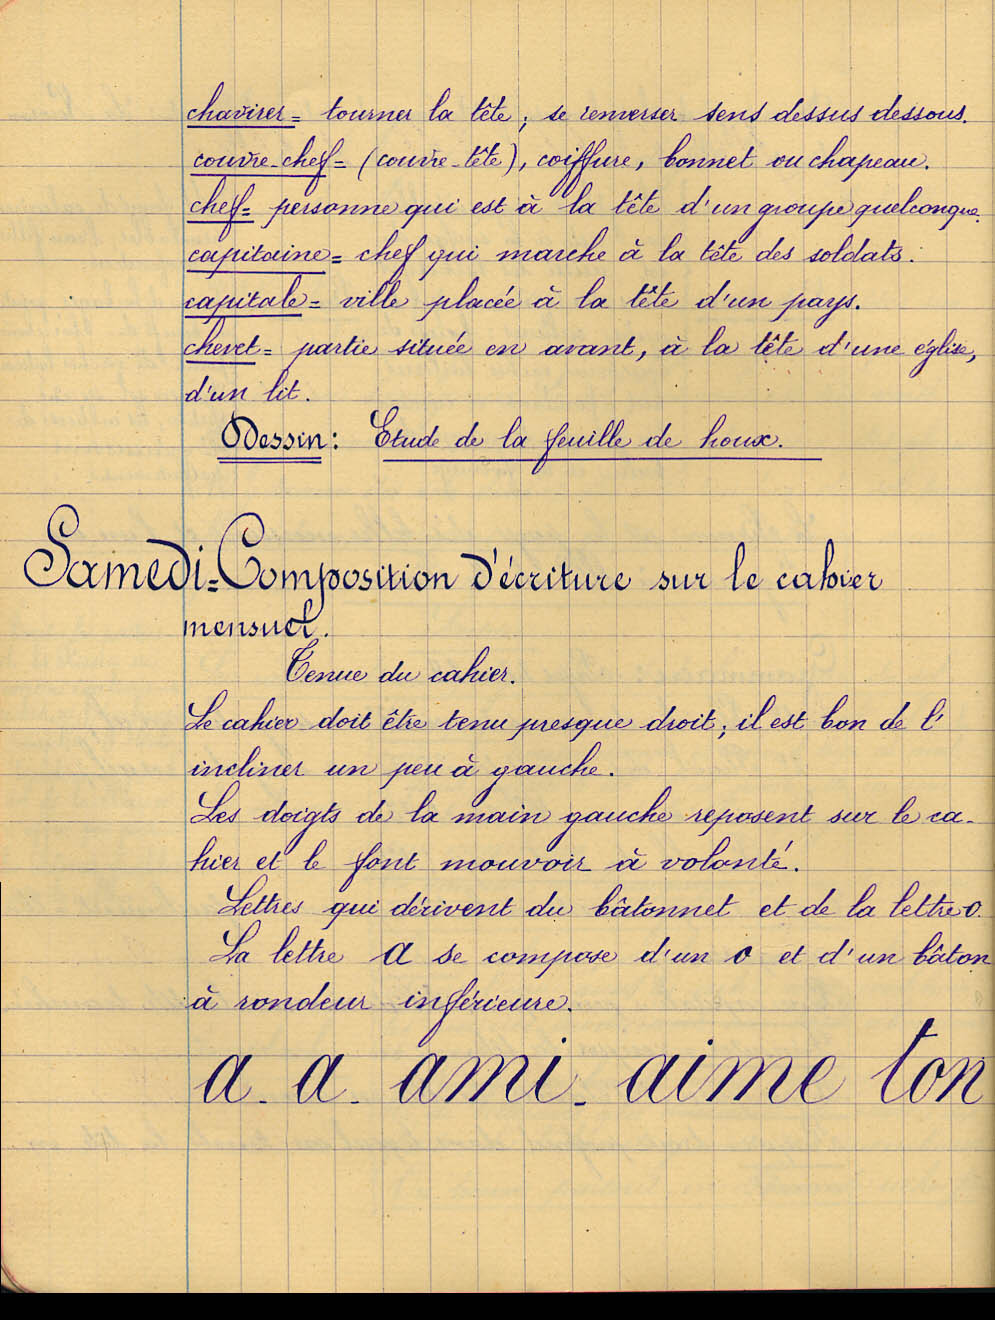 chavirer = tourner la tête ; se renverser sens dessus dessous.
couvre-chef = (couvre-tête), coiffure, bonnet ou chapeau.
chef = personne qui est à la tête d'un groupe quelconque.
capitaine = chef qui marche à la tête des soldats.
capitale = ville placée à la tête d'un pays.
chevet = partie située en avant, à la tête d'une église,
d'un lit.
Dessin : Etude de la feuille de houx.
Samedi = Composition d'écriture sur le cahier
mensuel.
Tenue du cahier.
Le cahier doit être tenu presque droit ; il est bon de l'
incliner un peu à gauche.
Les doigts de la main gauche reposent sur le ca-
hier et le font mouvoir à volonté.
Lettres qui dérivent du bâtonnet et de la lettre o.
La lettre a se compose d'un o et d'un bâton
à rondeur inférieure.
a. a. ami. aime ton